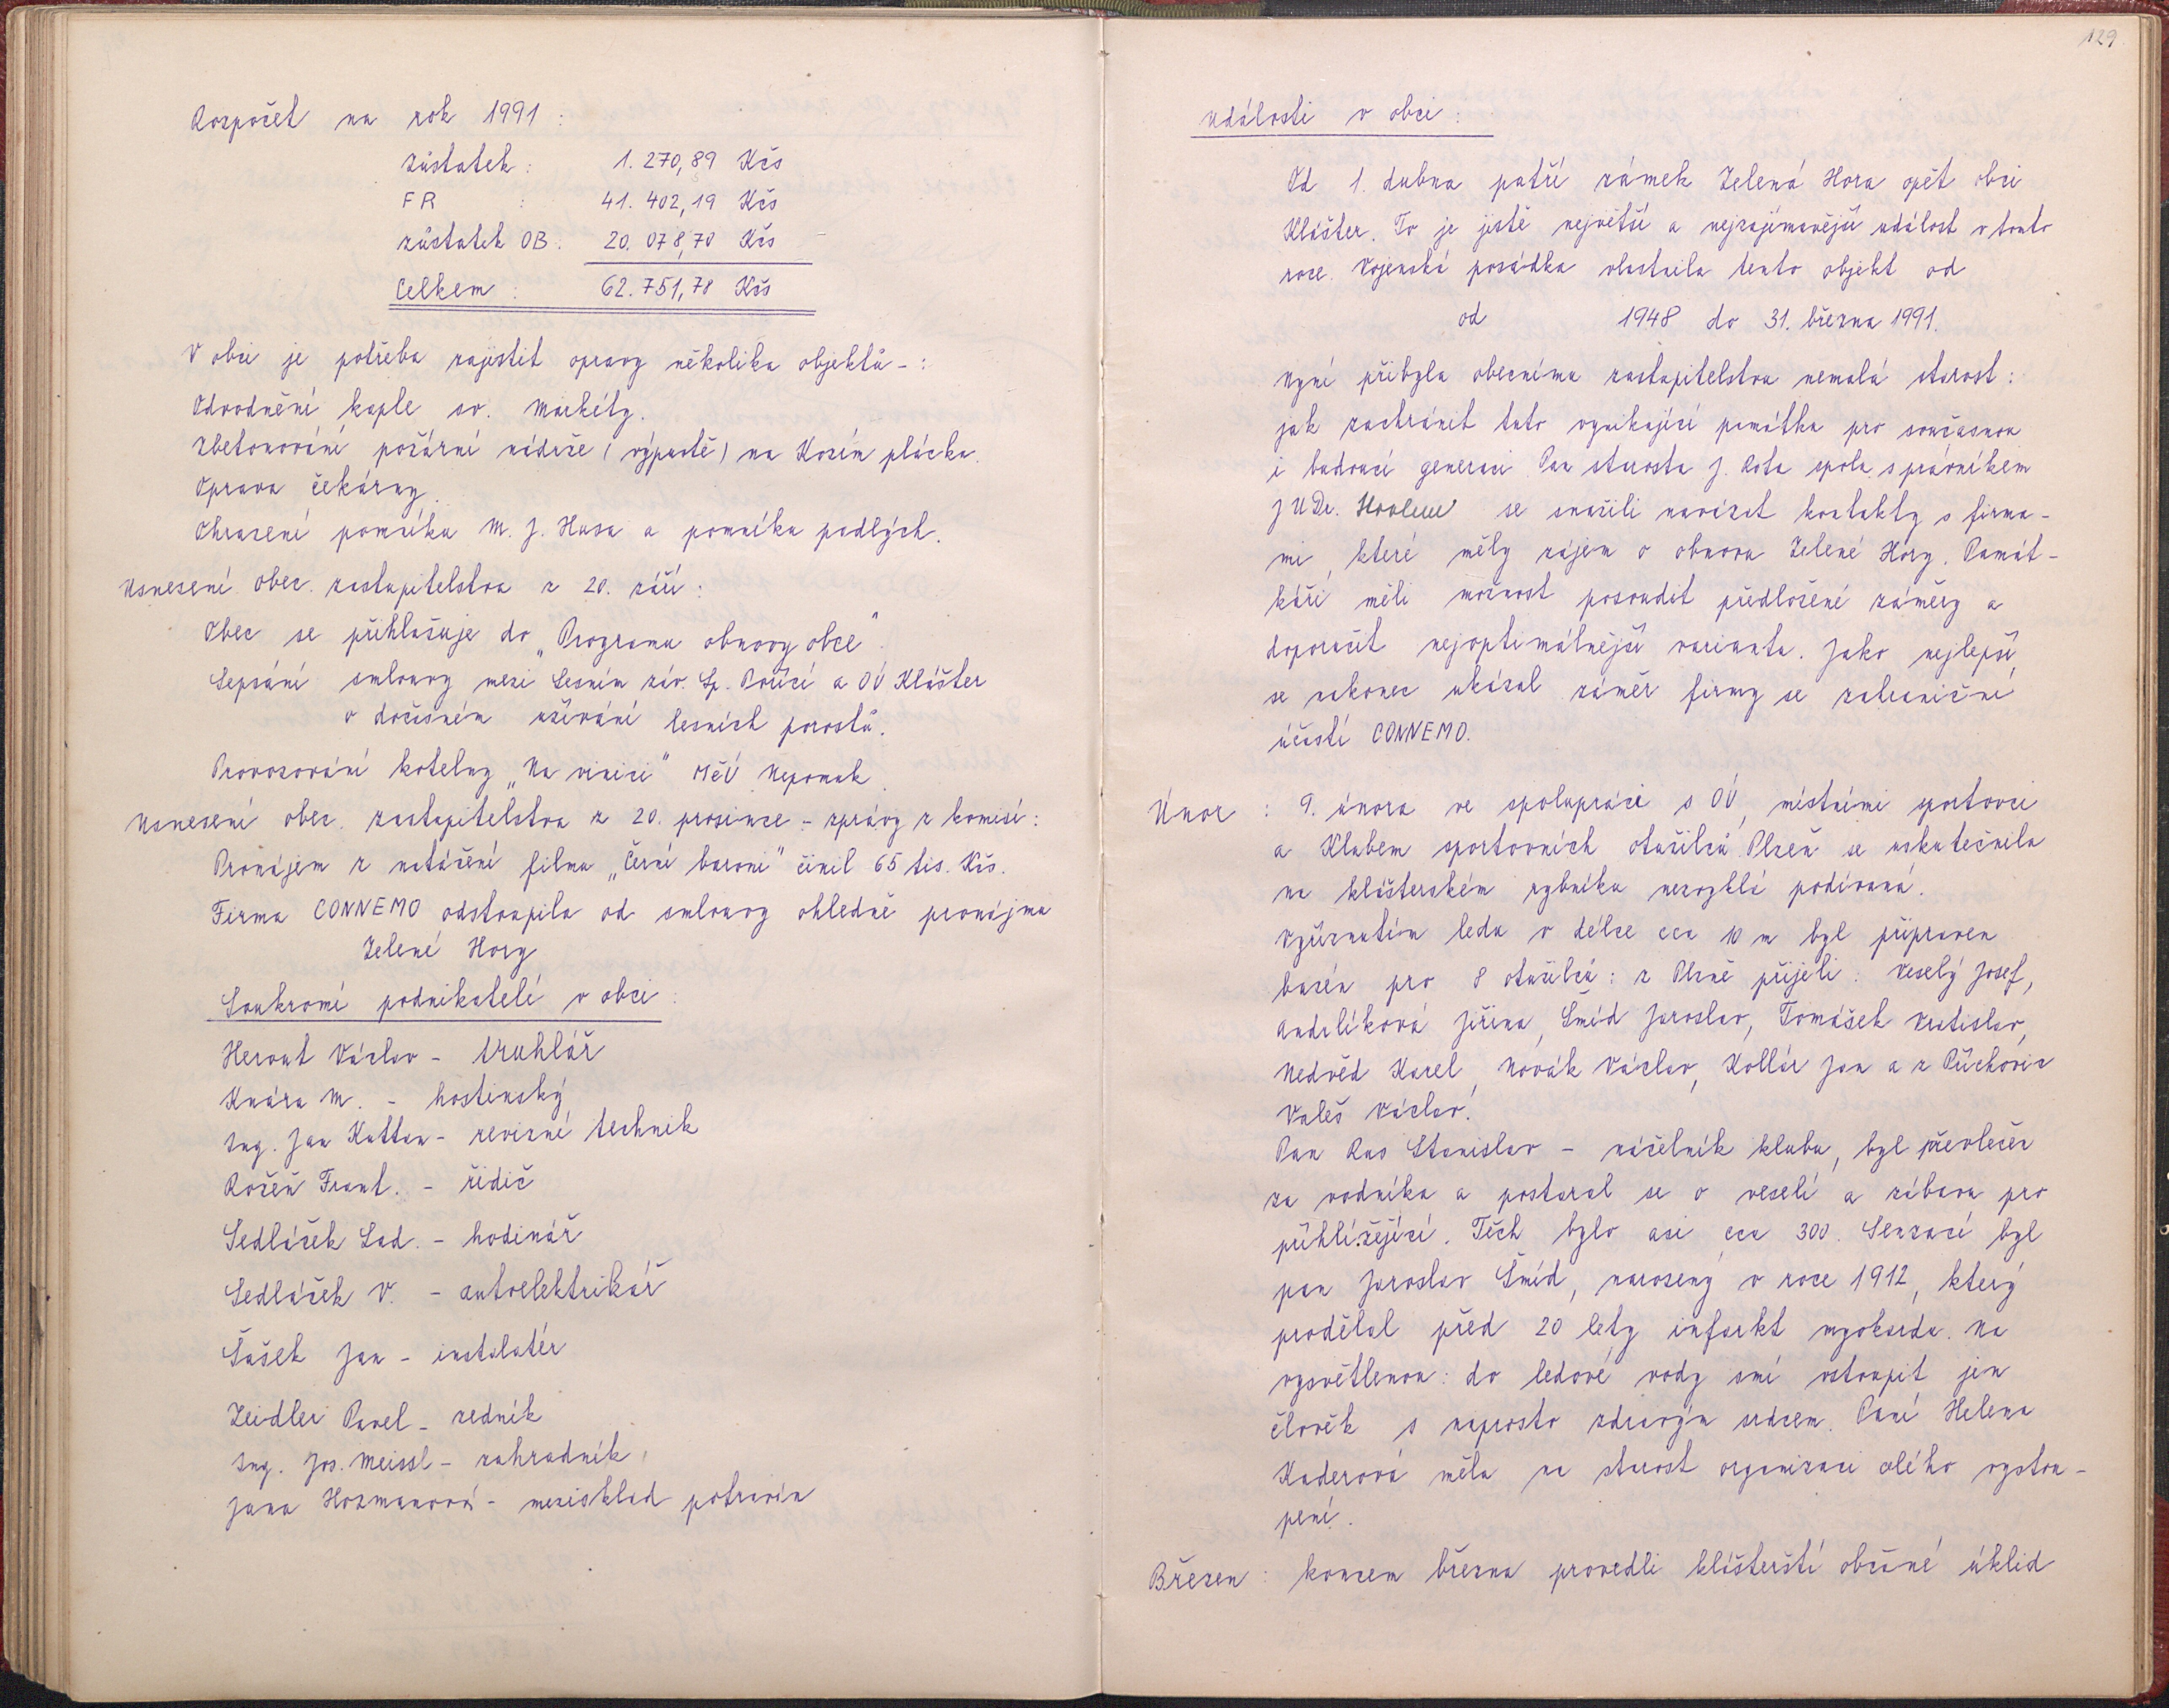 Rozpočet na rok 1991 :
zůstatek : 1.270,89 Kčs
FR : 41.402,19 Kčs
zůstatek OB : 20.078,70 Kčs
Celkem : 62.751,78 Kčs
V obci je potřeba zajistit opravy několika objektů - :
Odvodnění kaple sv. Markéty.
Zbetonování požární nádrže (výpustě) na Kozím plácku.
Oprava čekárny.
Ohrazení pomníku M. J. Husa a pomníku padlých.
Usnesení obec. zastupitelstva z 20. září :
Obec se přihlašuje do „Programu obnovy obce".
Sepsání smlouvy mezi Lesním záv. Sp. Poříčí a OÚ Klášter
o dočasném užívání lesních porostů.
Provozování kotelny „Na vinici" MěÚ Nepomuk.
Usnesení obec. zastupitelstva z 20. prosince - zprávy z komisí :
Pronájem z natáčení filmu „Černí baroni" činil 65 tis. Kčs.
Firma CONNEMO odstoupila od smlouvy ohledně pronájmu
Zelené Hory
Soukromí podnikatelé v obci :
Herout Václav - truhlář
Knára M. - hostinský
Ing. Jan Kattan - revizní technik
Rožeň Frant. - řidič
Sedláček Lad. - hodinář
Sedláček V. - autoelektrikář
Šašek Jan - instalatér
Zeidler Pavel - zedník
Ing. Jos. Meissl - zahradník
Jana Hozmanová - mezisklad potravin
129
Události v obci :
Od 1. dubna patří zámek Zelená Hora opět obci
Klášter. To je jistě největší a nejzajímavější událost v tomto
roce. Vojenská posádka vlastnila tento objekt od
od 1948 do 31. března 1991.
Nyní přibyla obecnímu zastupitelstvu nemalá starost :
jak zachránit tuto vynikající památku pro současnou
i budoucí generaci. Pan starosta J. Rota spolu s právníkem
JUDr. se snažili navázat kontakty s firma-
mi, které měly zájem o obnovu Zelené Hory. Památ-
káři měli možnost posoudit předložené záměry a
doporučit nejoptimálnější variantu. Jako nejlepší
se nakonec ukázal záměr firmy se zahraniční
účastí CONNEMO.
Únor : 9. února ve spolupráci s OÚ, místními sportovci
a Klubem sportovních otužilců Plzeň se uskutečnila
na klášterském rybníku nezvyklá podívaná.
Vyříznutím ledu v délce cca 10 m byl připraven
bazén pro 8 otužilců : z Plzně přijeli : Veselý Josef,
Andrlíková Jiřina, Šmíd Jaroslav, Tomášek Vratislav,
Nedvěd Karel, Novák Václav, Kollár Jan a z Příchovic
Valeš Václav.
Pan Rus Stanislav - náčelník klubu, byl převlečen
za vodníka a postaral se o veselí a zábavu pro
přihlížející. Těch bylo asi cca 300. Senzací byl
pan Jaroslav Šmíd, narozený v roce 1912, který
prodělal před 20 lety infarkt myokardu. Na
vysvětlenou : do ledové vody smí vstoupit jen
člověk s naprosto zdravým srdcem. Paní Helena
Kuderová měla na starost organizaci celého vystou-
pení.
Březen : koncem března provedli klášterští občané úklid